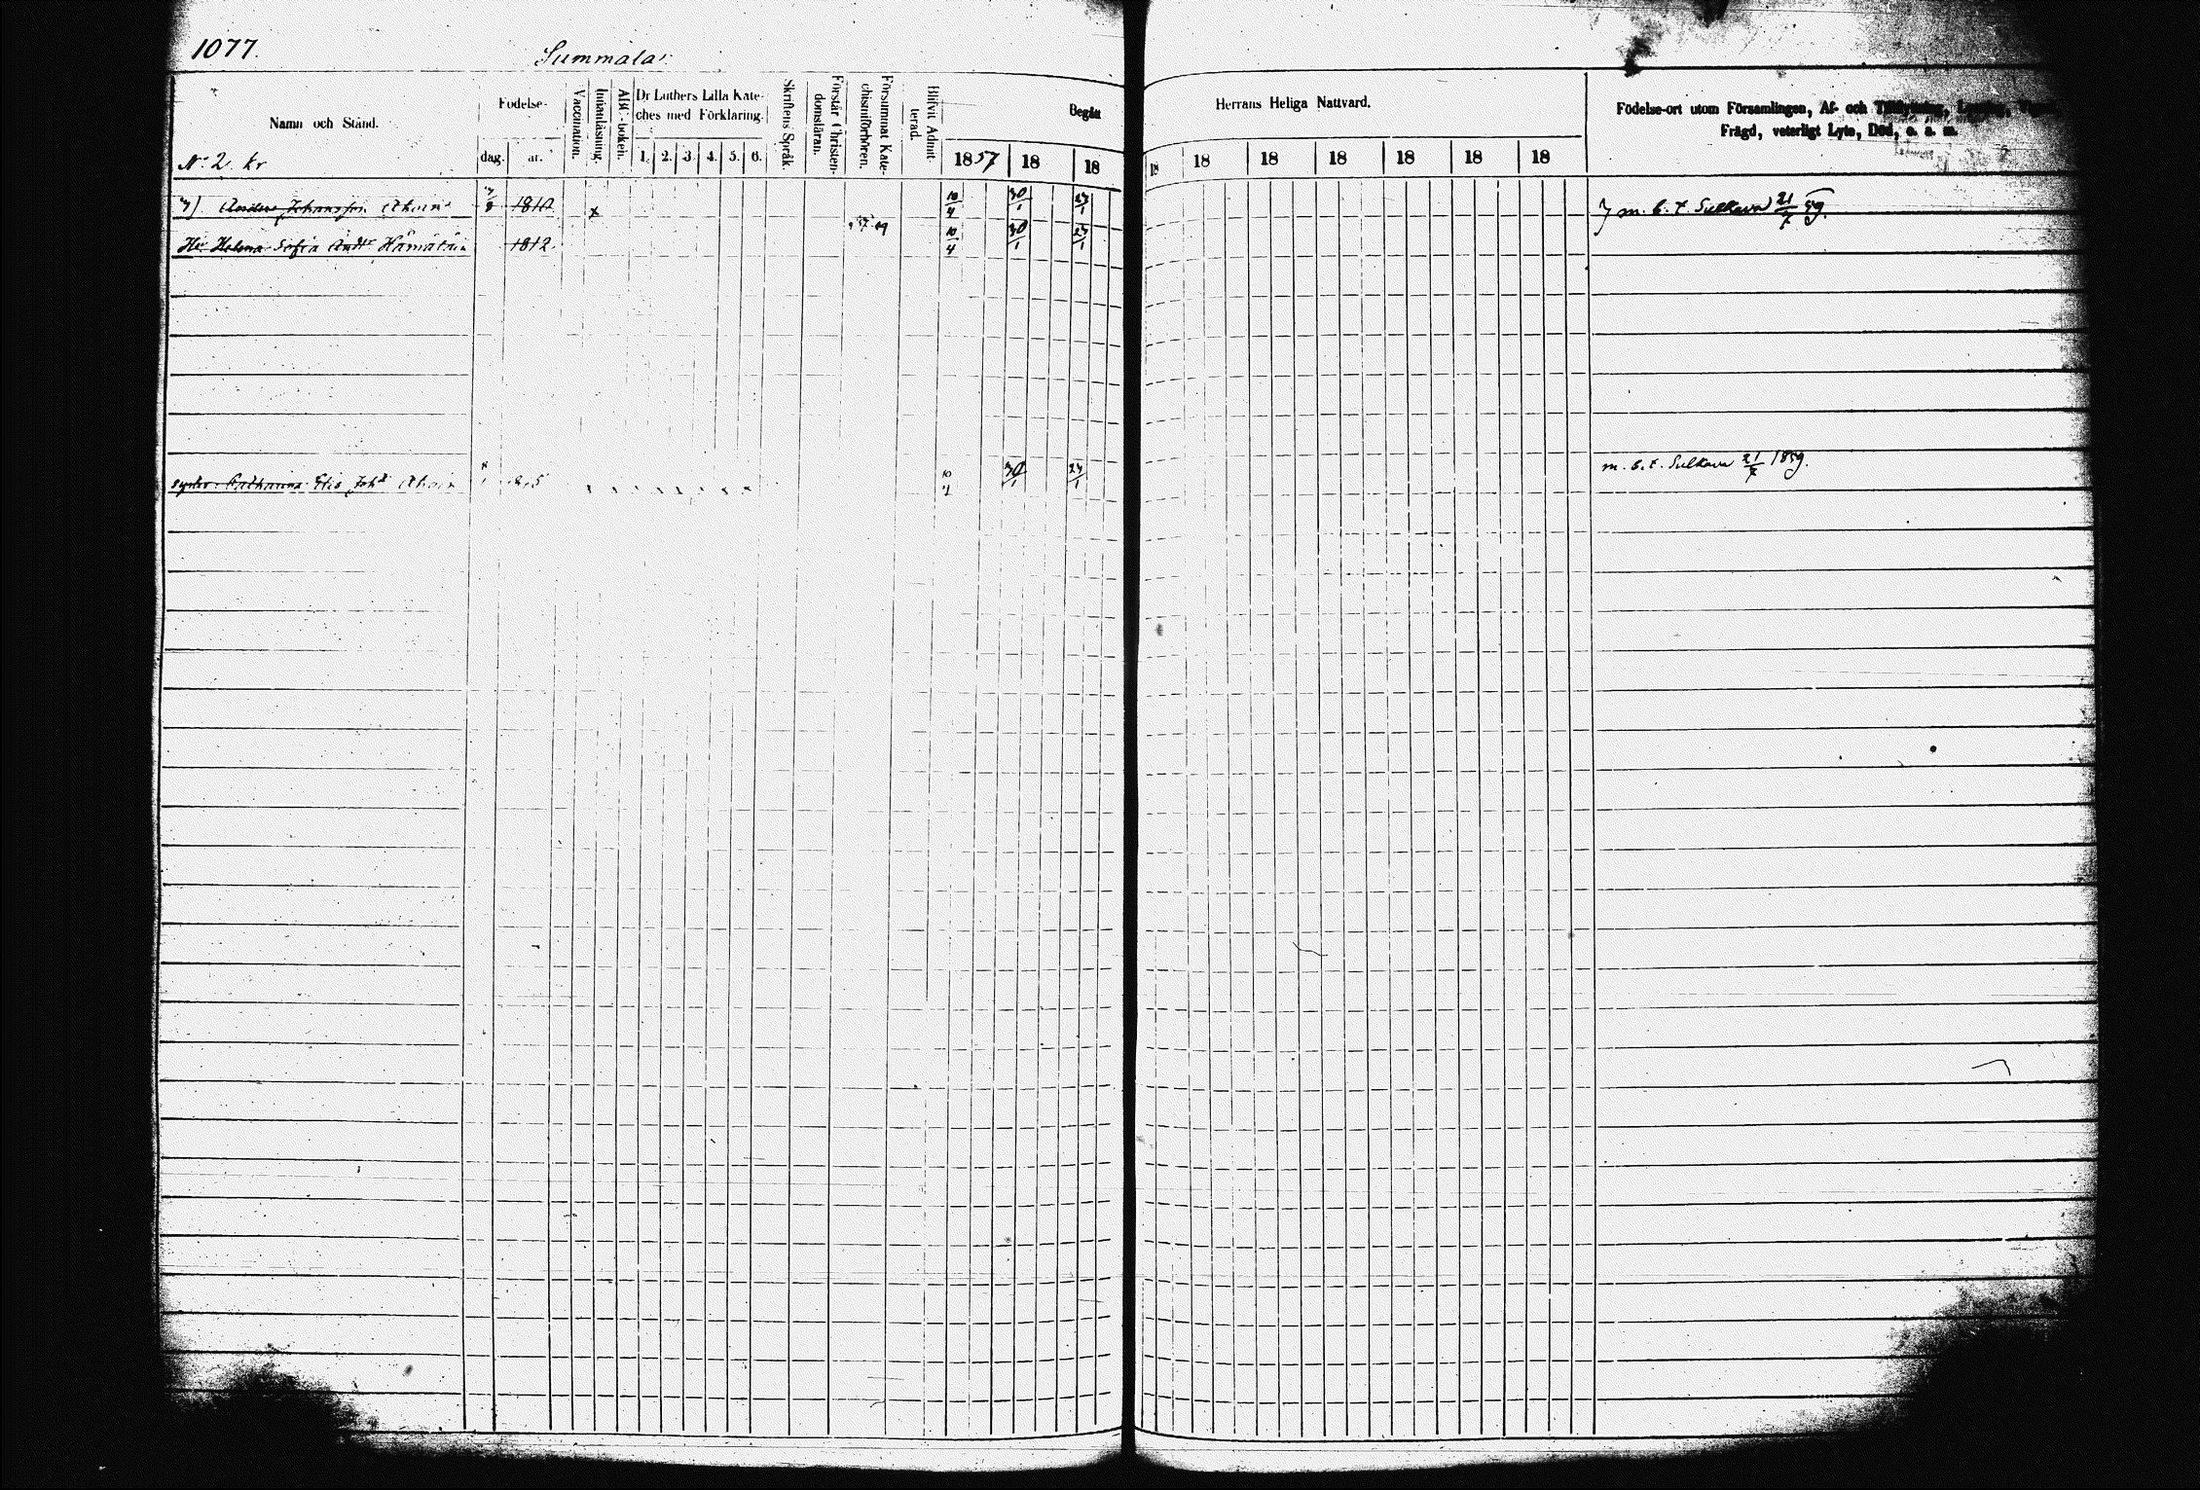 1077.
Summala
Namn och Stånd.
Födelse-
dag.
år.
Vaccination.
Innanläsning.
ABC-boken.
Dr Luthers Lilla Kate-
ches med Förklaring.
1. 2. 3. 4. 5. 6.
Skriftens Språk.
Förstår Christen-
domsläran.
Försummat Kate-
chismiförhören.
Blifvit Admit-
terad.
Begått
1857 18 18
Herrans Heliga Nattvard.
18 18 18 18 18 18 18
Födelse-ort utom Församlingen, Af- och
Frägd, veterligt Lyte, Död, o. s. m.
No 2. kr
Anders Johansson 1810 10/4 30/1 23/1 m. b. t. Sulkava 21/7 59.
Hu Helena Sofia Andr 1812 10/4 30/1 23/1
Catharina Elis Joh 10/4 30/1 23/1 m. b. t. Sulkava 21/7 1859.